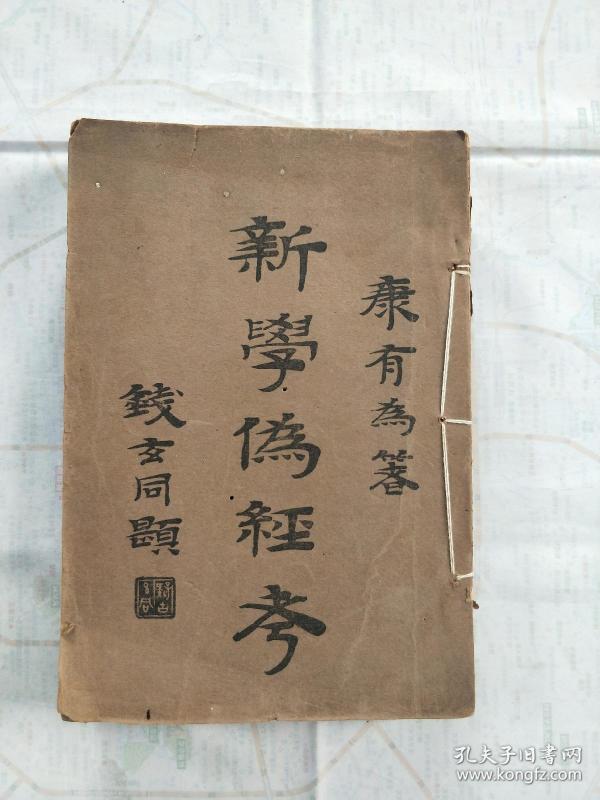 康有為箸
新學偽經考
錢玄同題
孔夫子旧书网
www.kongfz.com